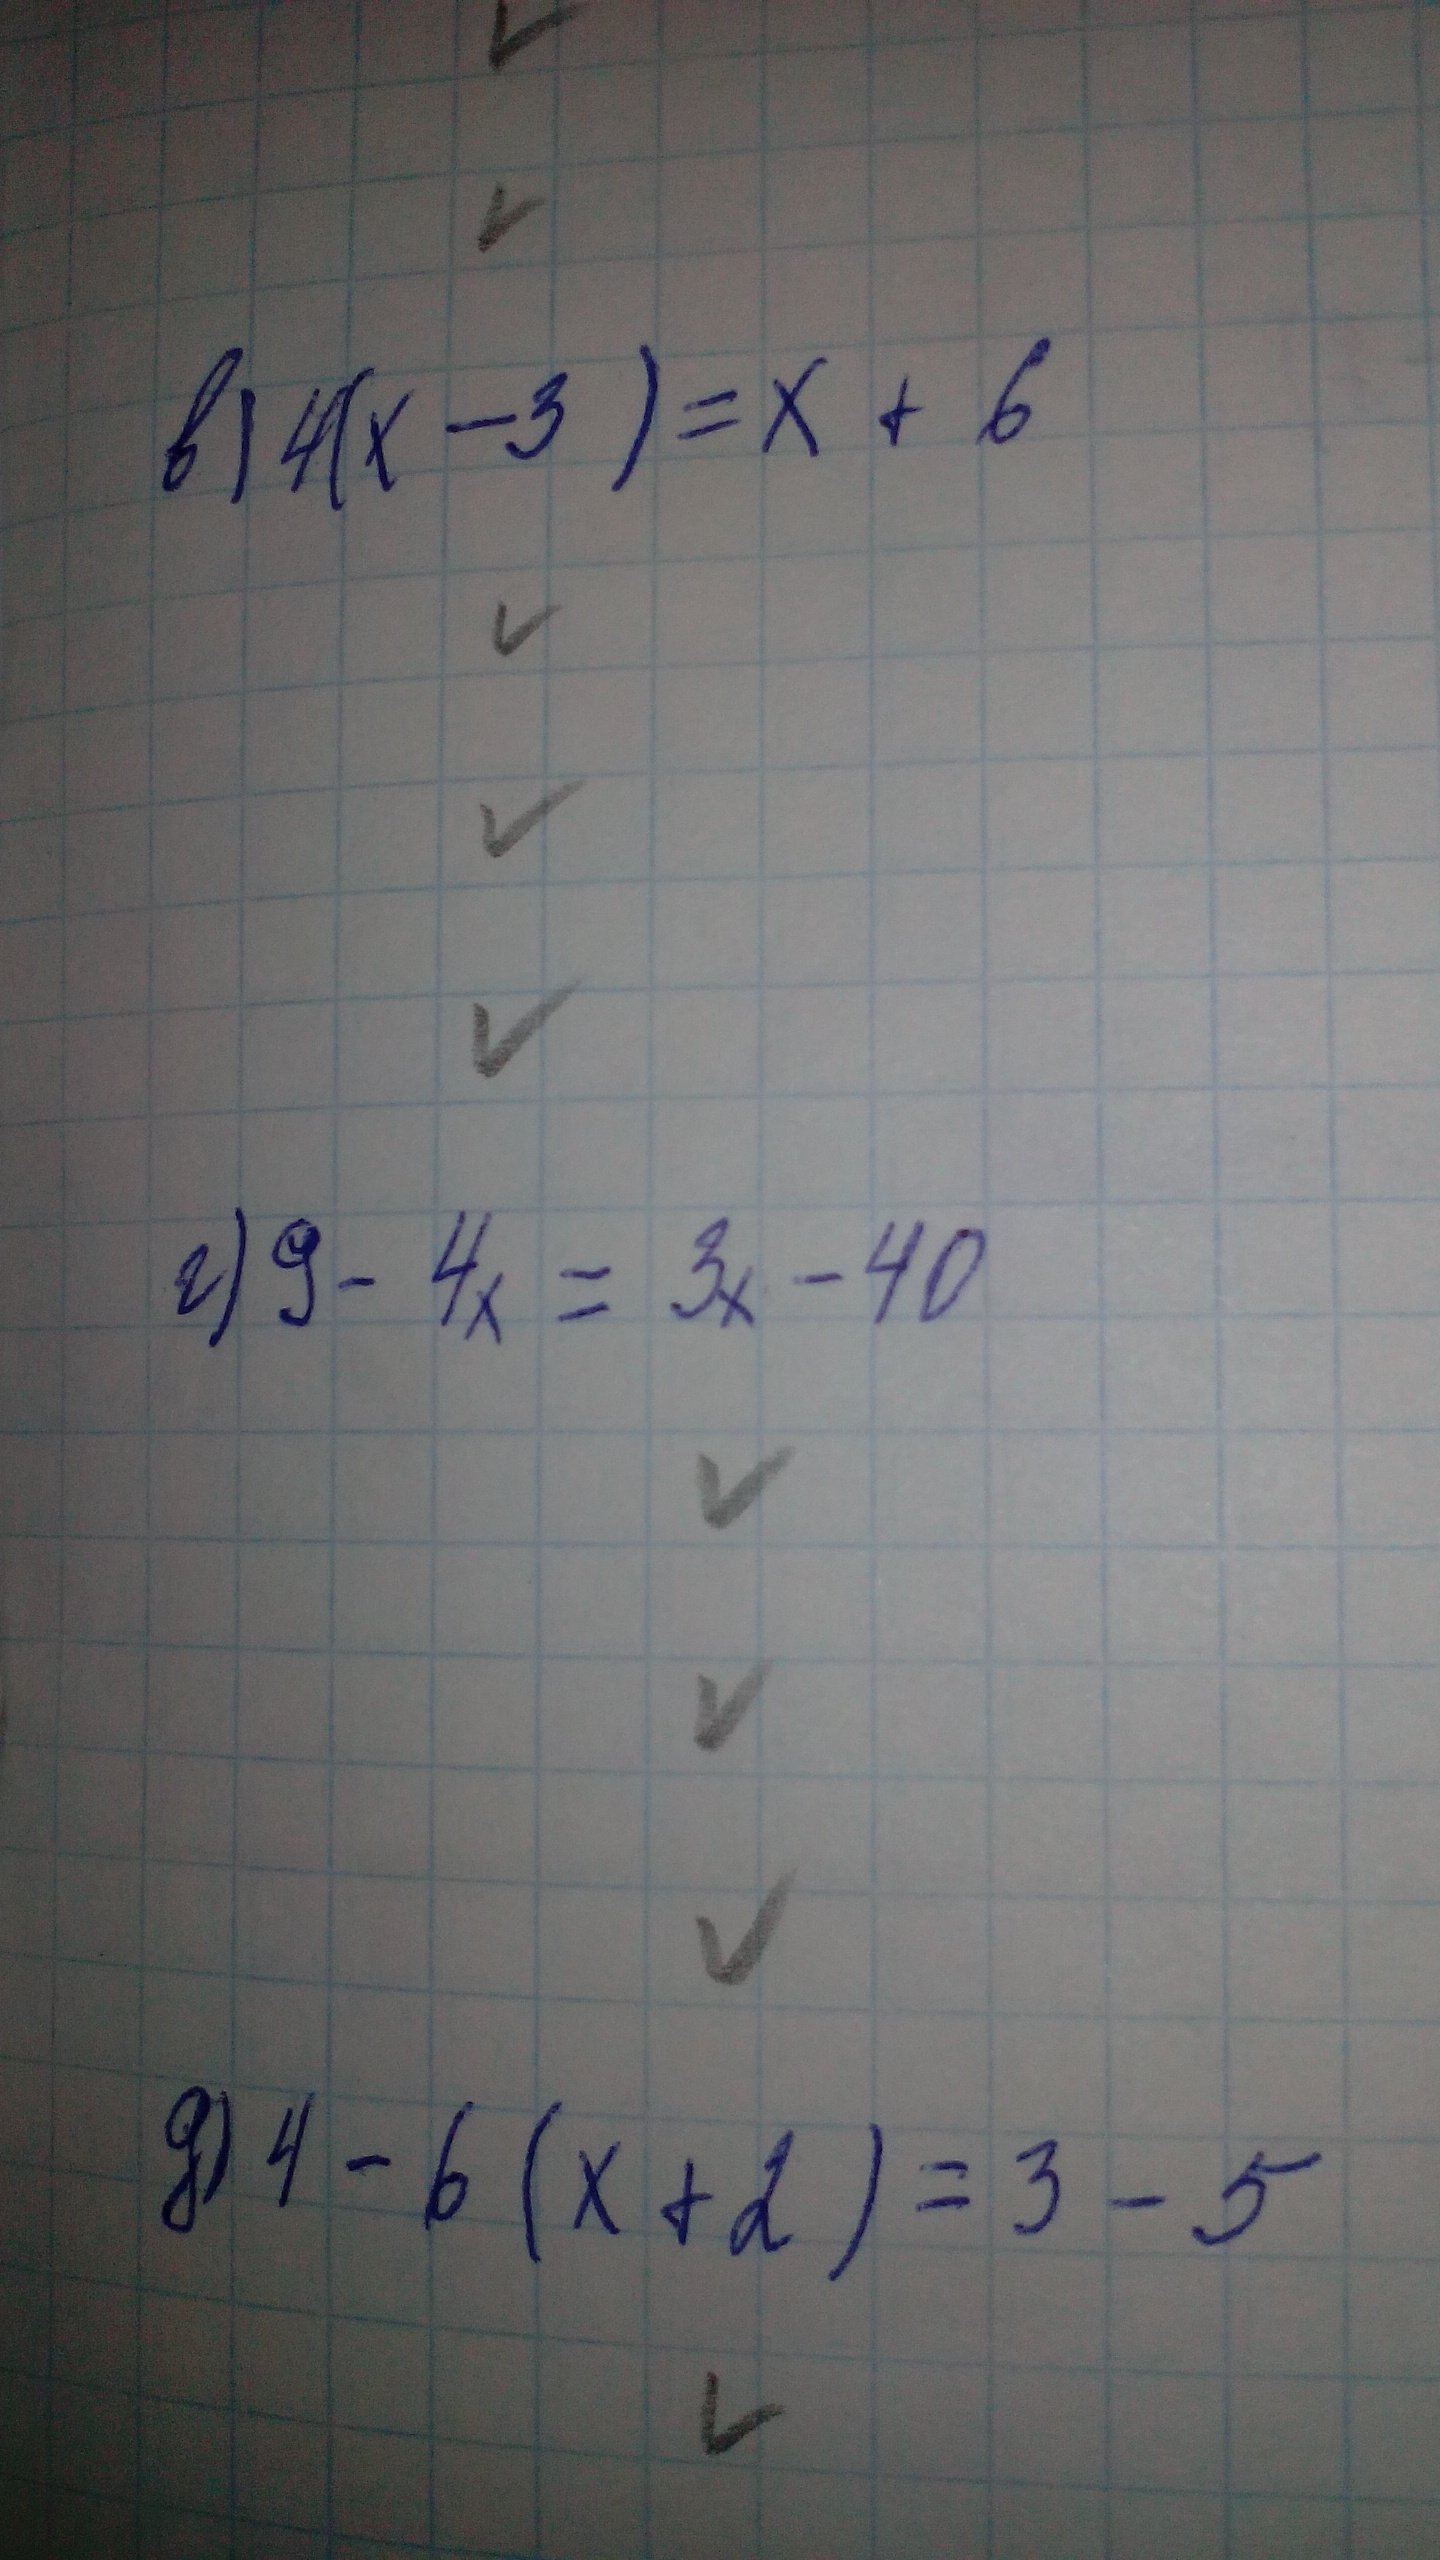 в) 4(х - 3) = х + 6
г) 9 - 4х = 3х - 40
д) 4 - 6(х + 2) = 3 - 5